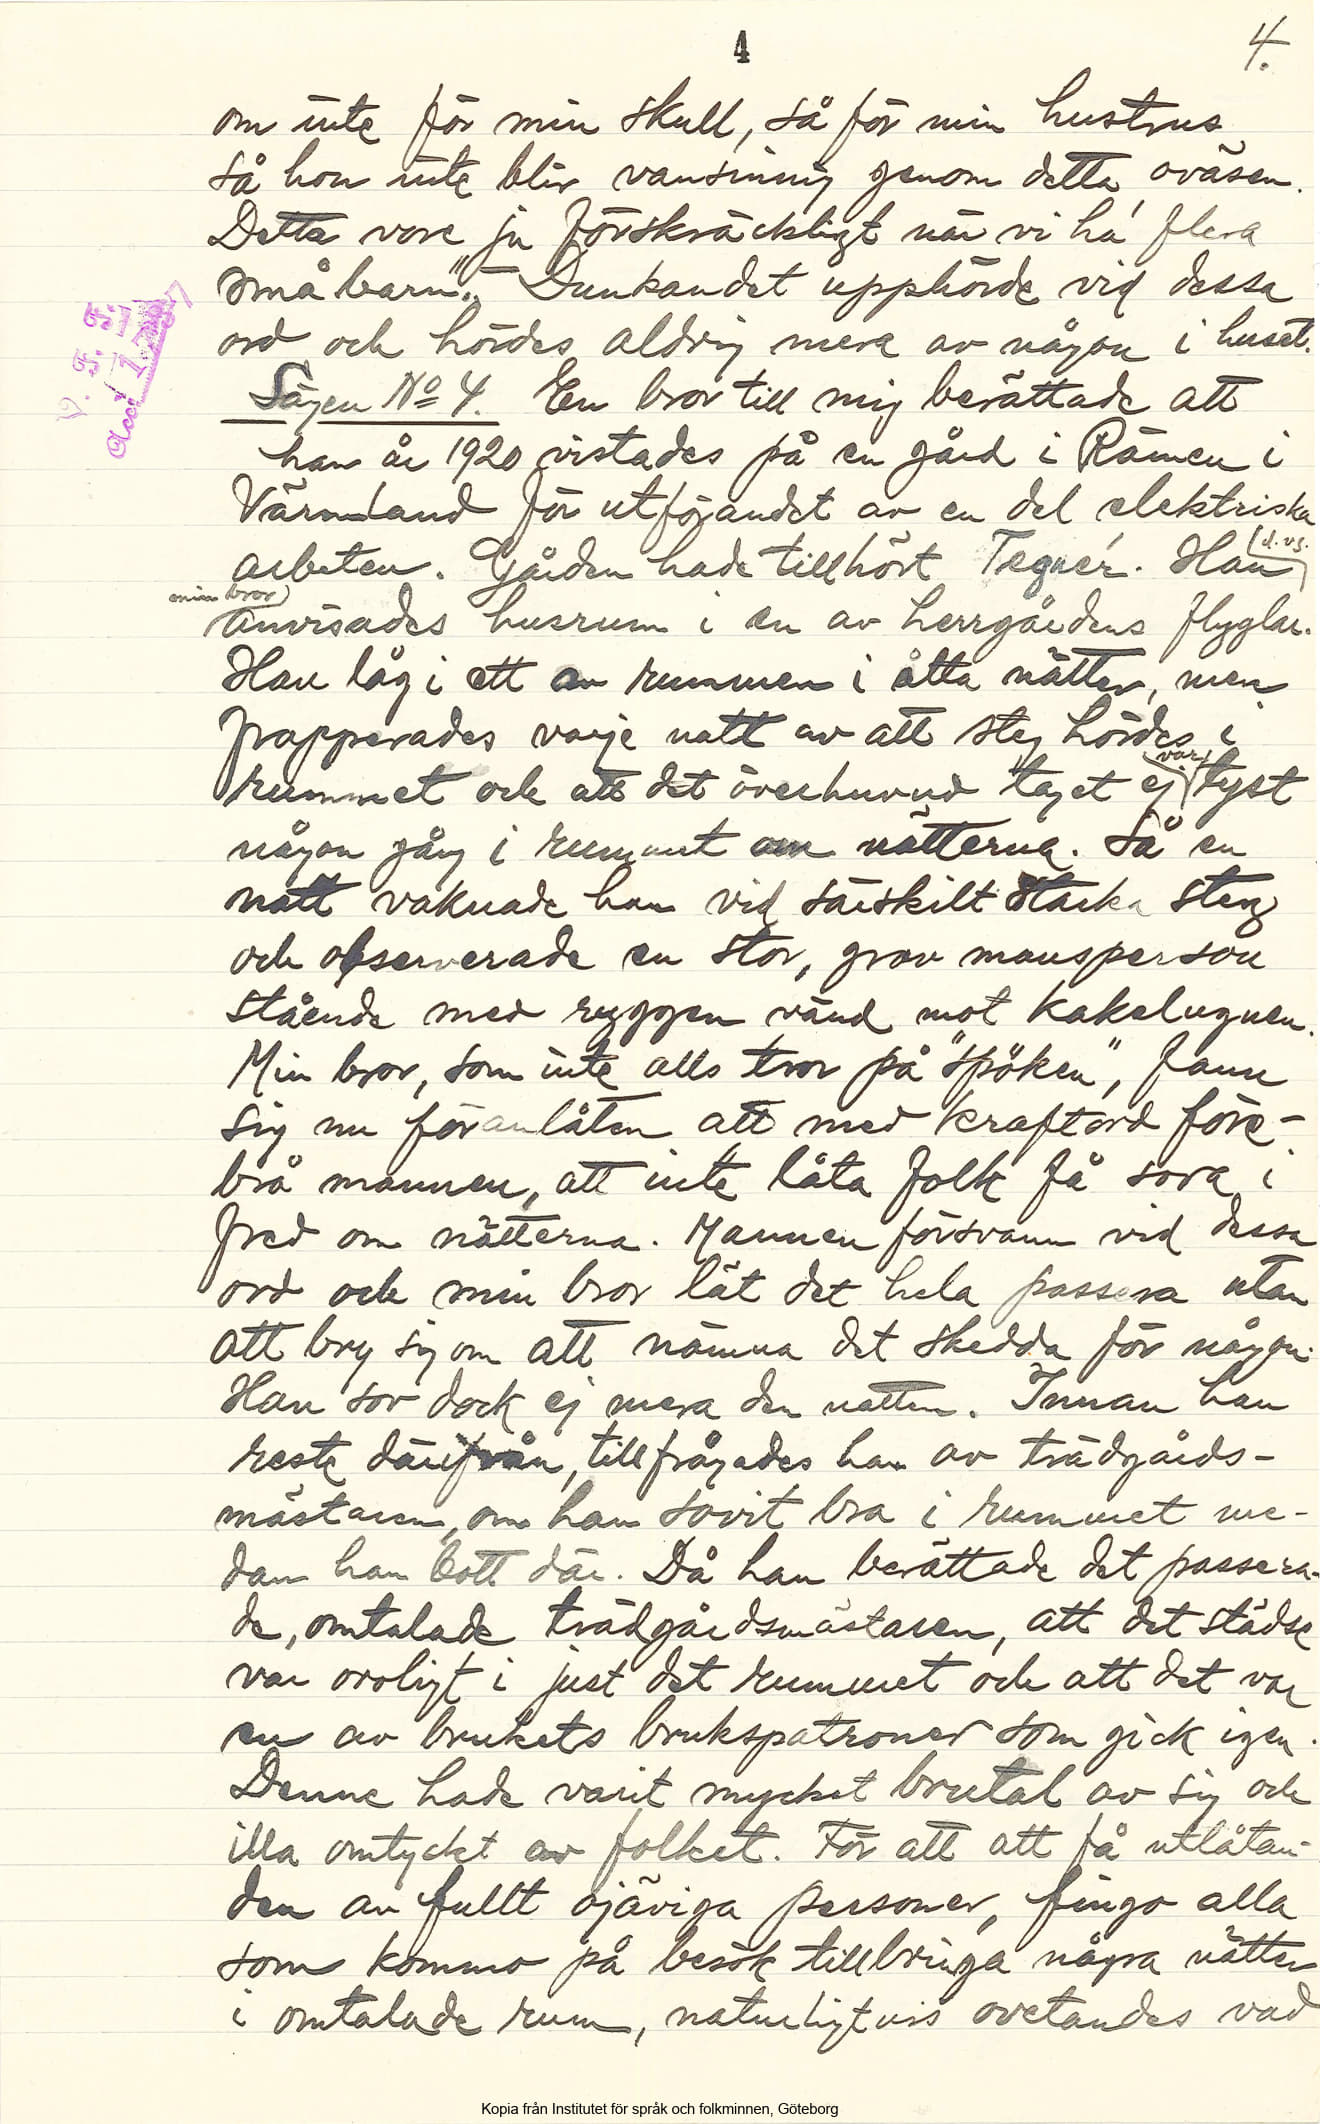 4
4.
om inte för min skull, så för min hustrus
så hon inte blir vansinnig genom detta oväsen.
Detta vore ju förskräckligt när vi ha flera
små barn". – Dunkandet upphörde vid dessa
ord och hördes aldrig mera av någon i huset.
V. F. F:s
Acc.
Sägen No 4. En bror till mig berättade att
han år 1920 vistades på en gård i Rämen i
Värmland för utförandet av en del elektriska
arbeten. Gården hade tillhört Tegnér. Han (d.vs.
min bror) anvisades husrum i en av herrgårdens flyglar.
Han låg i ett av rummen i åtta nätter, men
frapperades varje natt av att steg hördes i
rummet och att det överhuvud taget ej var tyst
någon gång i rummet om nätterna. Så en
natt vaknade han vid särskilt starka steg
och observerade en stor, grov mansperson
stående med ryggen vänd mot kakelugnen.
Min bror, som inte alls tror på "spöken", fann
sig nu föranlåten att med kraftord före-
brå mannen, att inte låta folk få sova i
fred om nätterna. Mannen försvann vid dessa
ord och min bror lät det hela passera utan
att bry sig om att nämna det skedda för någon.
Han sov dock ej mera den natten. Innan han
reste därifrån, tillfrågades han av trädgårds-
mästaren, om han sovit bra i rummet me-
dan han bott där. Då han berättade det passera-
de, omtalade trädgårdsmästaren, att det städse
var oroligt i just det rummet och att det var
en av brukets brukspatroner som gick igen.
Denne hade varit mycket brutal av sig och
illa omtyckt av folket. För att att få utlåtan-
den av fullt ojäviga personer, fingo alla
som kommo på besök tillbringa några nätter
i omtalade rum, naturligtvis ovetandes vad
Kopia från Institutet för språk och folkminnen, Göteborg